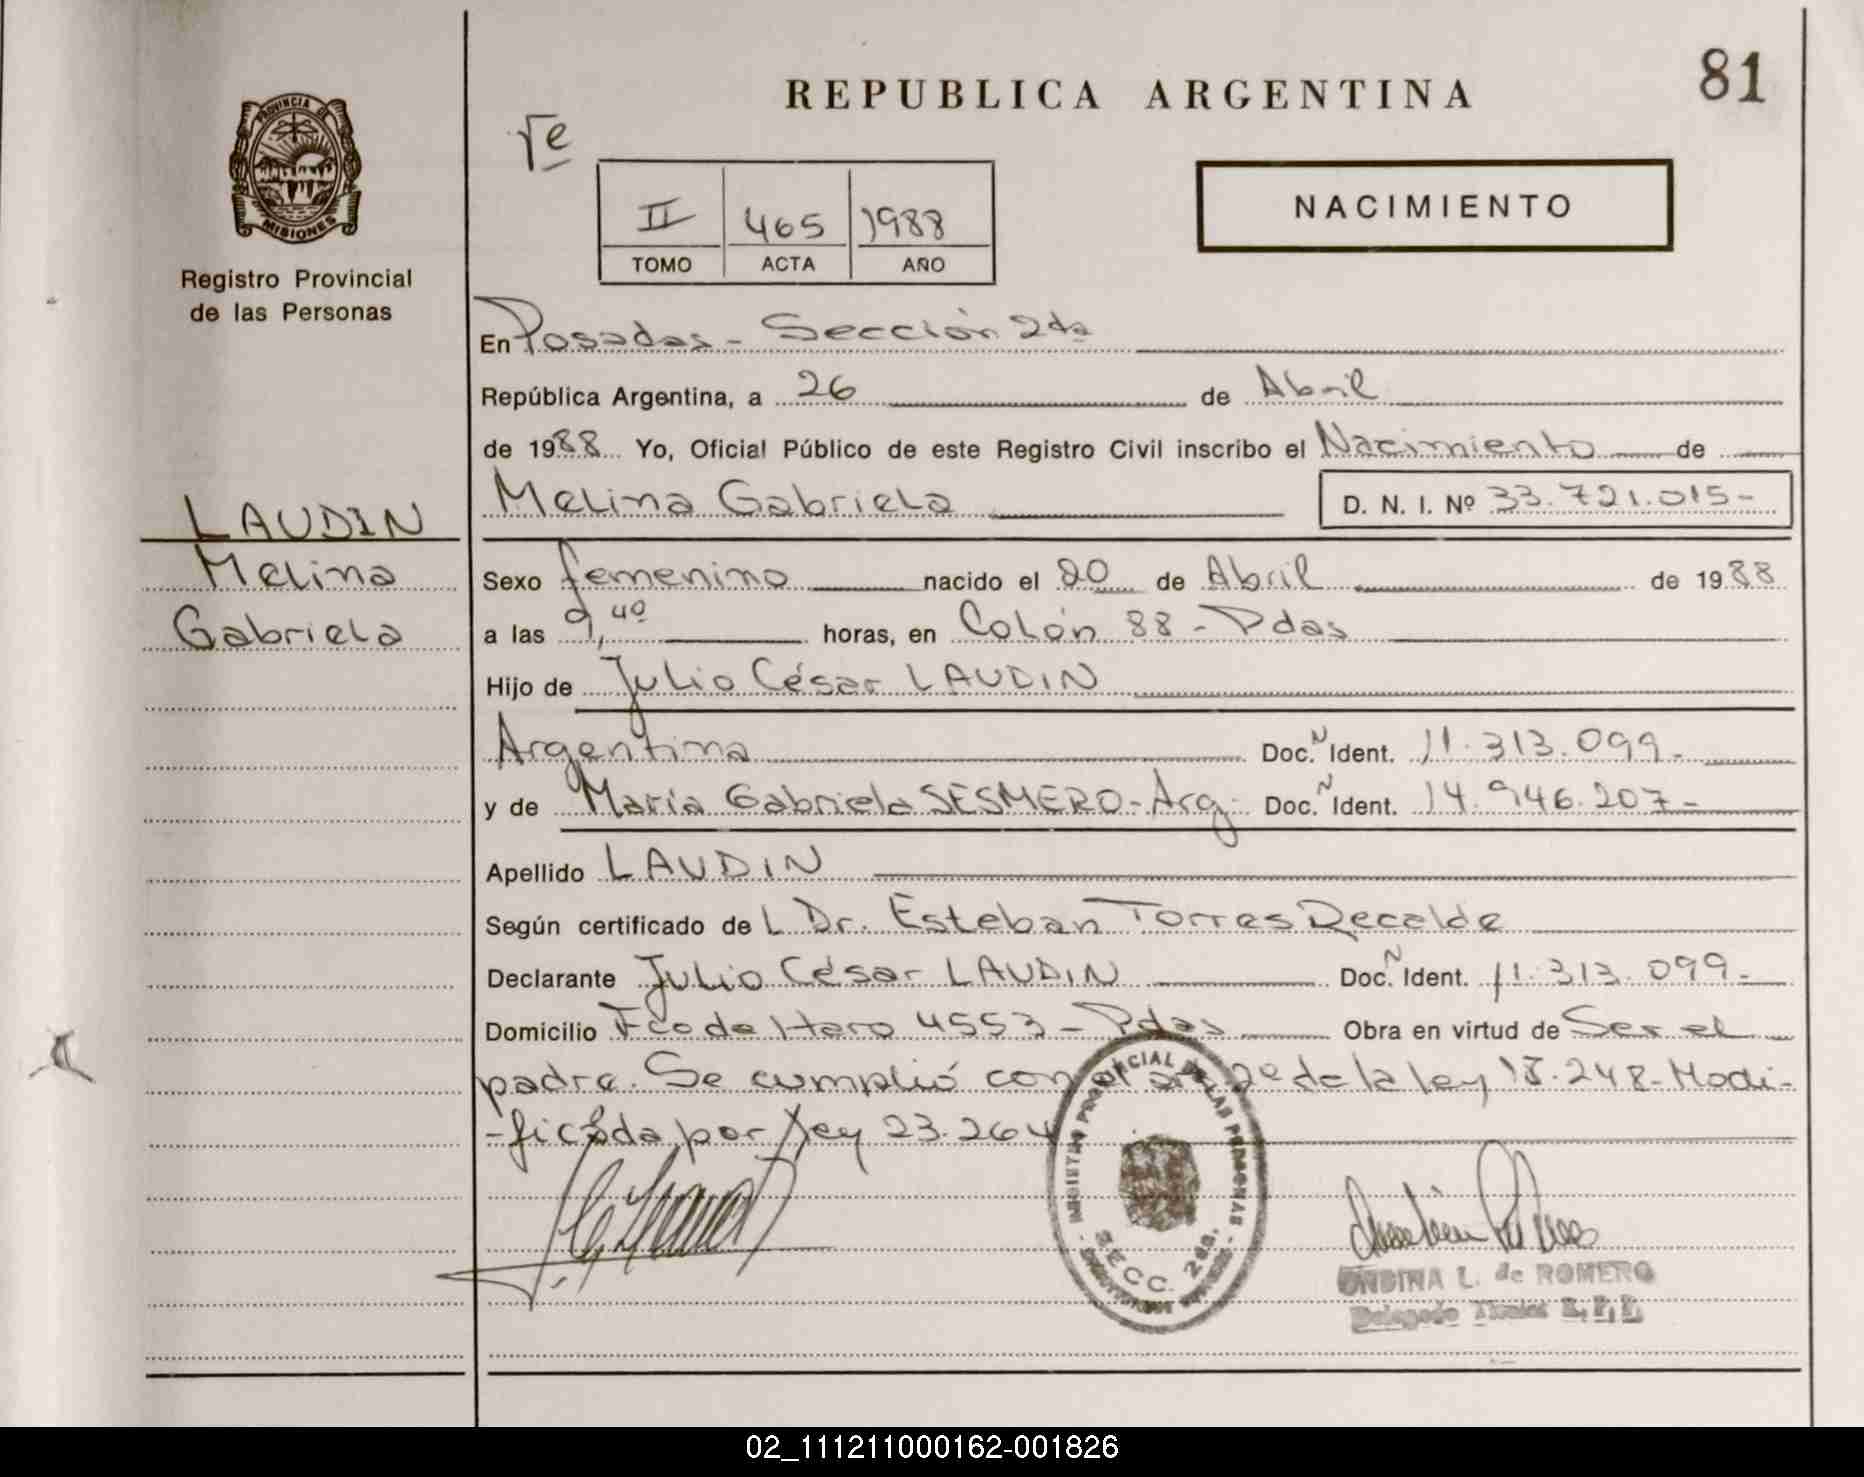 REPUBLICA ARGENTINA
81
PROVINCIA DE
MISIONES
Registro Provincial
de las Personas
II 465 1988
TOMO ACTA AÑO
NACIMIENTO
En Posadas - Sección 2da
República Argentina, a 26 de Abril
de 1988 Yo, Oficial Público de este Registro Civil inscribo el Nacimiento de
Melina Gabriela D. N. I. Nº 33.721.015-
LAUDIN
Melina
Gabriela
Sexo femenino nacido el 20 de Abril de 1988
a las 9,40 horas, en Colón 88 - Pdas
Hijo de Julio César LAUDIN
Argentina Doc. N Ident. 11.313.099-
y de María Gabriela SESMERO - Arg. Doc. N Ident. 14.946.207-
Apellido LAUDIN
Según certificado de L Dr. Esteban Torres Recalde
Declarante Julio César LAUDIN Doc. N Ident. 11.313.099-
Domicilio Fco de Haro 4553 - Pdas Obra en virtud de Ser el
padre. Se cumplió con el art 2º de la ley 18.248 - Modi-
-ficada por ley 23.264
PROVINCIAL DE LAS PERSONAS
SECC. 2da.
ONDINA L. de ROMERO
Delegado Titular R. P. P.
02_111211000162-001826